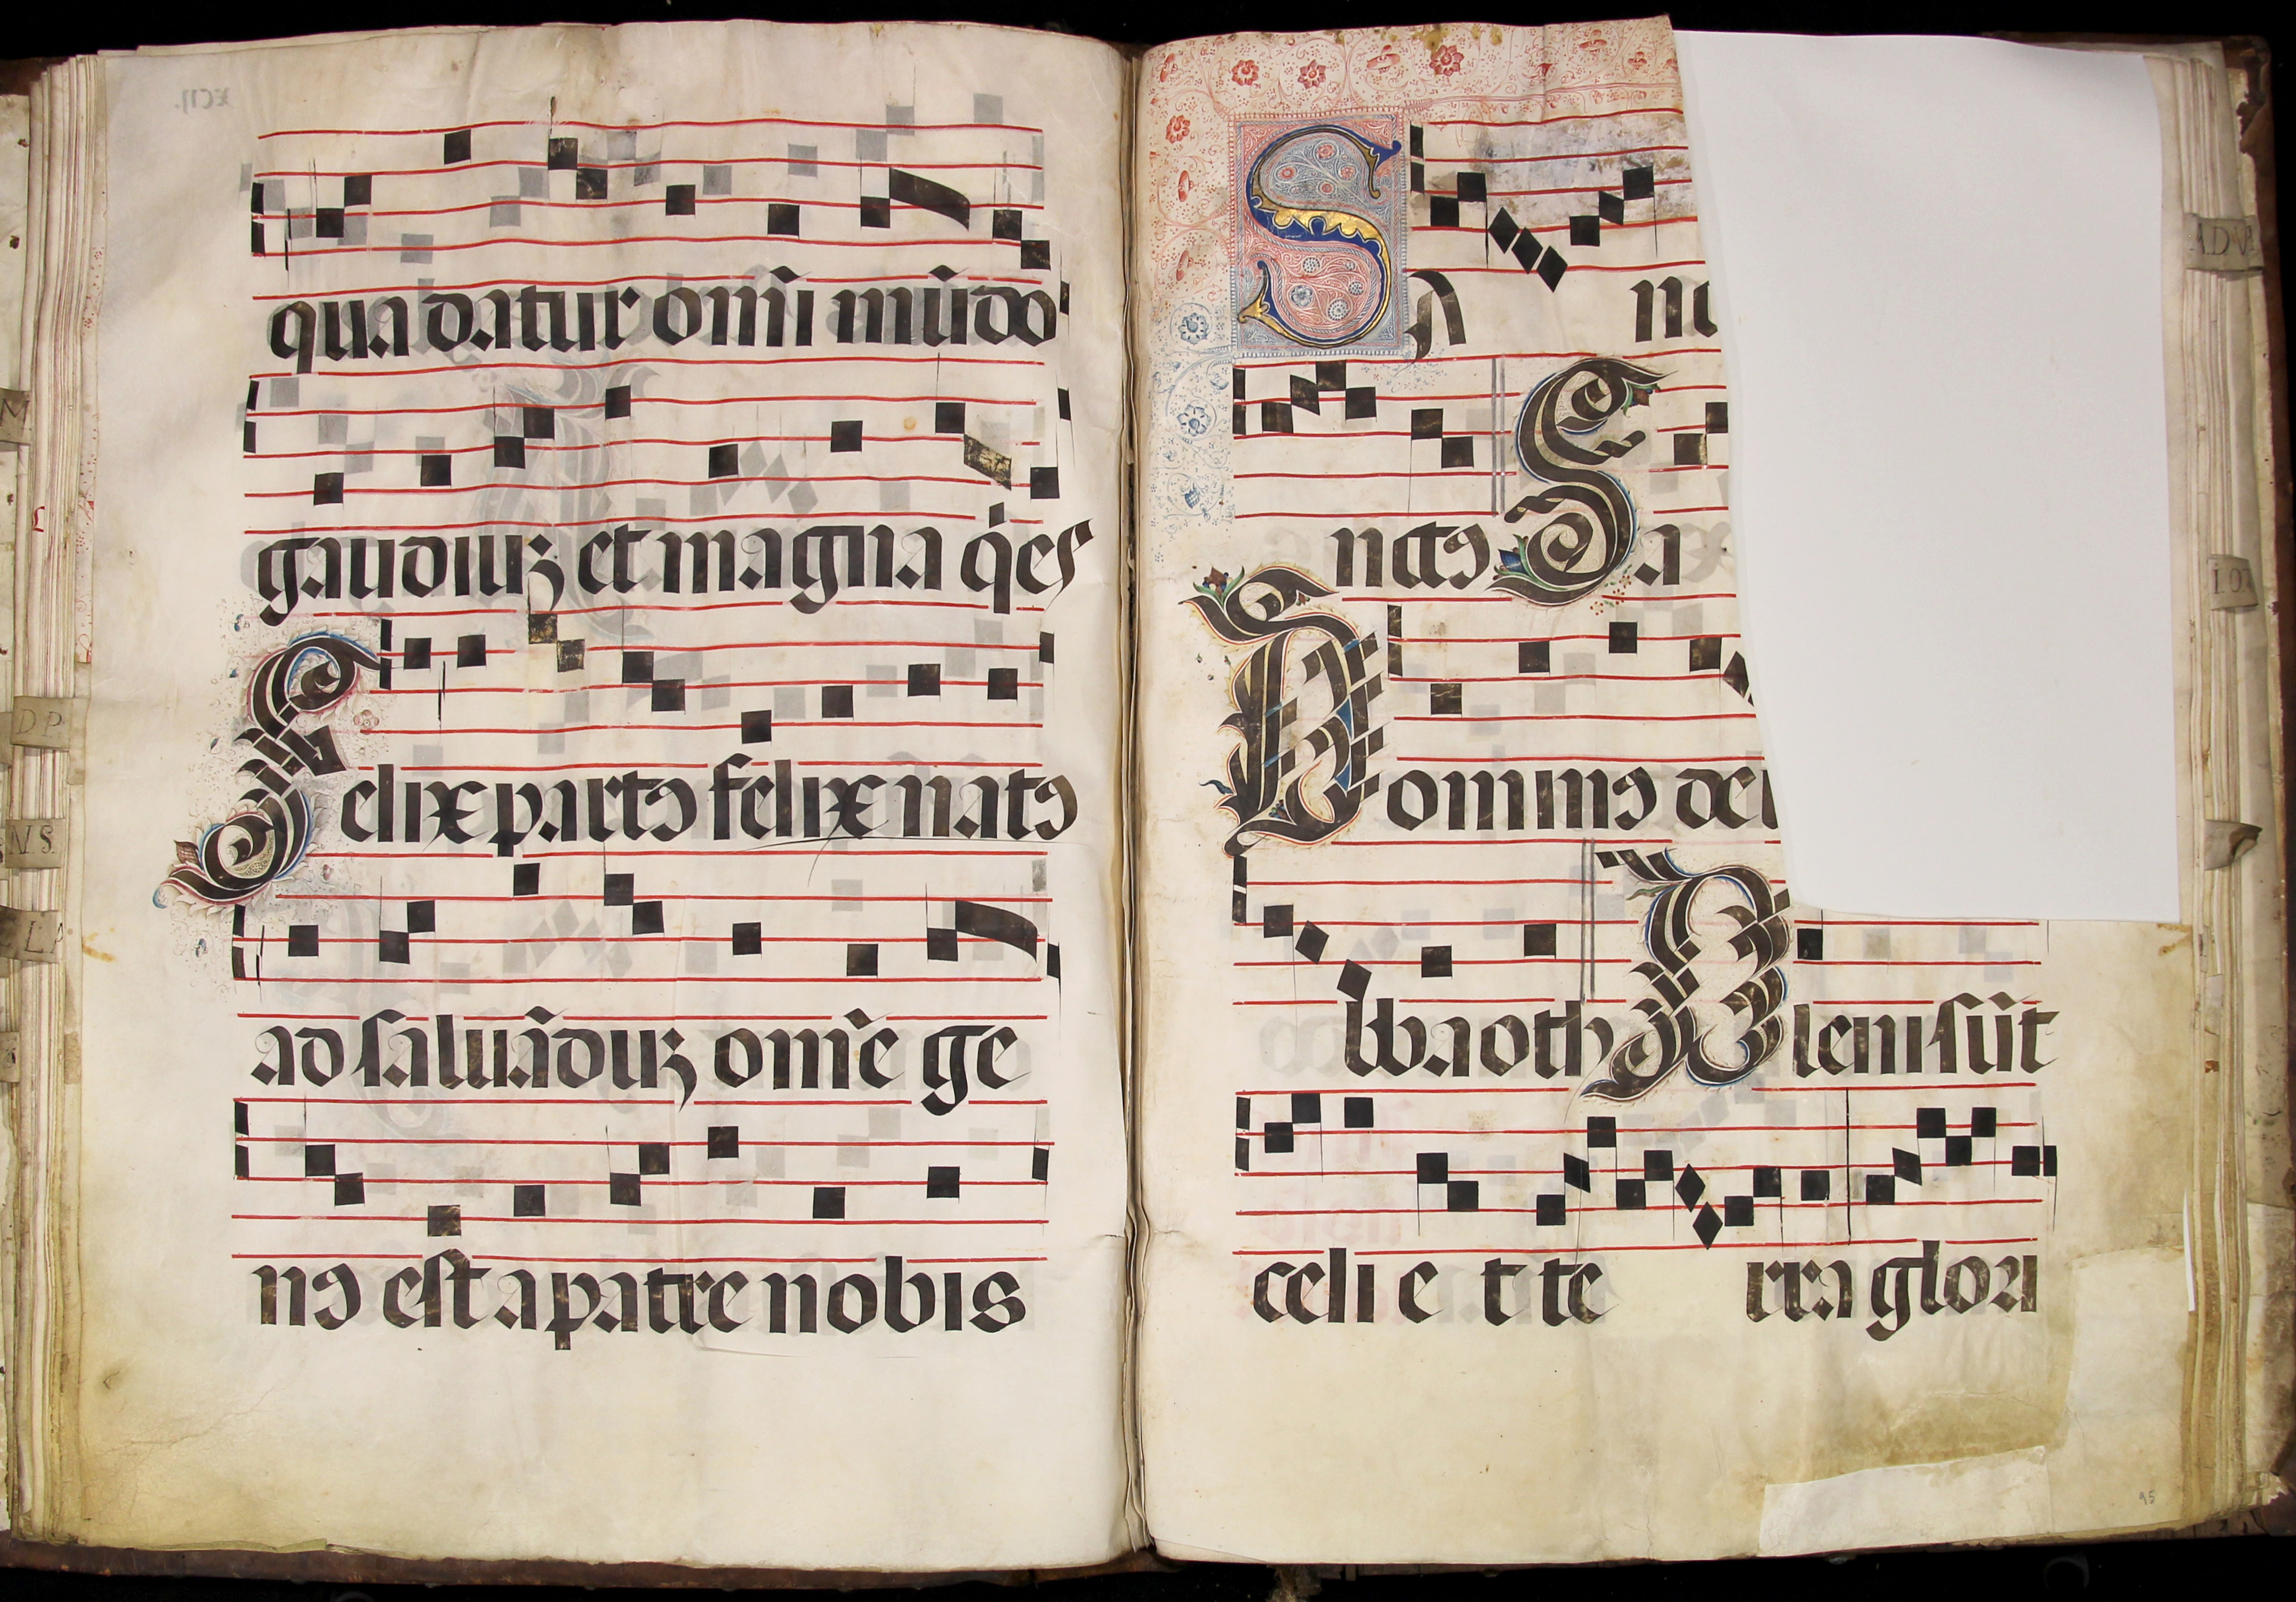 qua datur om̃i mũdo
gaudiuʒ et magna q̇es
Felix partꝯ felix natꝯ
ad saluãduʒ om̃e ge
nꝯ est a patre nobis
SA
nctꝯ Sa
Dominꝯ dei
bbaoth Pleni sũt
celi e t te rra glori
95